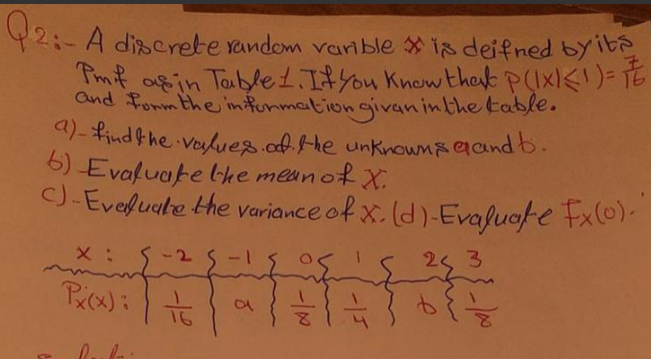 Q2:- A discrete random varible X is deifned by its
Pmf as in Table 1. If you know that P(|X|≤1)= 7/16
and from the information givan in the table.
a)- find the values of the unknowns a and b.
b) Evaluate the mean of X.
c)- Evaluate the variance of X. (d)-Evaluate Fx(0).
x : -2 -1 0 1 2 3
Px(x): 1/16 a 1/8 1/4 b 1/8